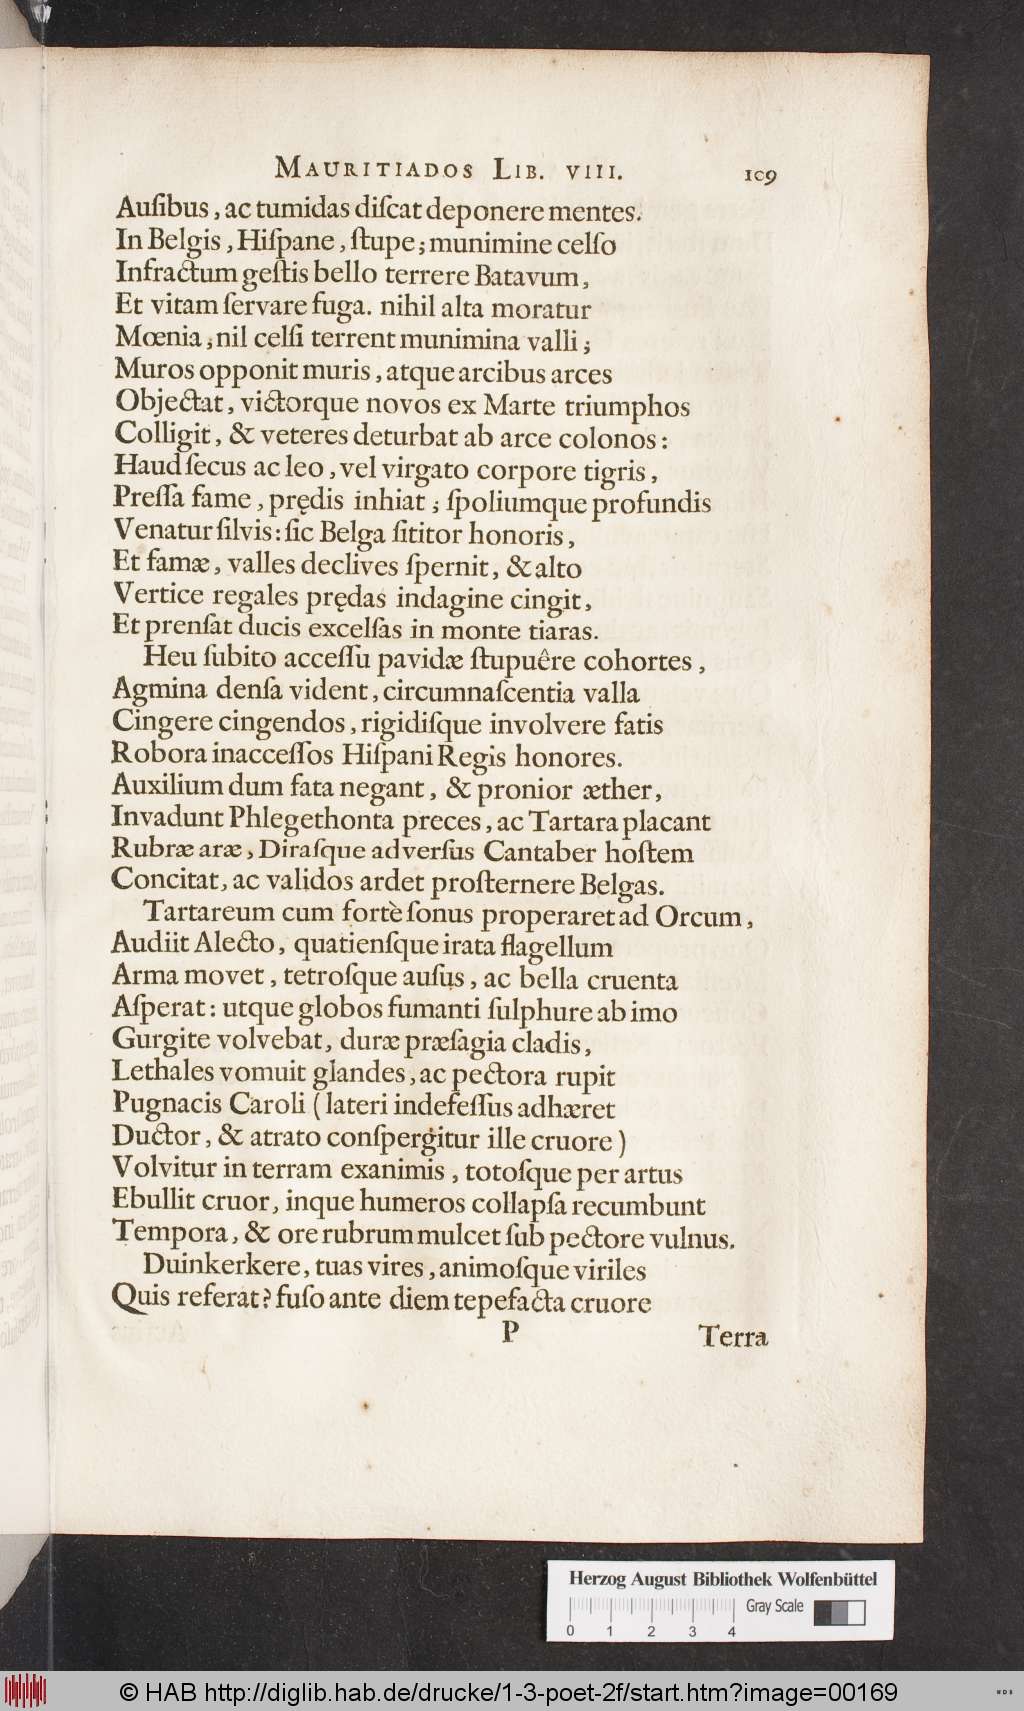 MAURITIADOS LIB. VIII. 109
Auſibus, ac tumidas diſcat deponere mentes.
In Belgis, Hiſpane, ſtupe; munimine celſo
Infractum geſtis bello terrere Batavum,
Et vitam ſervare fuga. nihil alta moratur
Mœnia, nil celſi terrent munimina valli;
Muros opponit muris, atque arcibus arces
Objectat, victorque novos ex Marte triumphos
Colligit, & veteres deturbat ab arce colonos:
Haud ſecus ac leo, vel virgato corpore tigris,
Preſſa fame, prędis inhiat; ſpoliumque profundis
Venatur ſilvis: ſic Belga ſititor honoris,
Et famæ, valles declives ſpernit, & alto
Vertice regales prędas indagine cingit,
Et prenſat ducis excelſas in monte tiaras.
Heu ſubito acceſſu pavidæ ſtupuêre cohortes,
Agmina denſa vident, circumnaſcentia valla
Cingere cingendos, rigidiſque involvere fatis
Robora inacceſſos Hiſpani Regis honores.
Auxilium dum fata negant, & pronior æther,
Invadunt Phlegethonta preces, ac Tartara placant
Rubræ aræ, Diraſque adverſus Cantaber hoſtem
Concitat, ac validos ardet proſternere Belgas.
Tartareum cum fortè ſonus properaret ad Orcum,
Audiit Alecto, quatienſque irata flagellum
Arma movet, tetroſque auſus, ac bella cruenta
Aſperat: utque globos fumanti ſulphure ab imo
Gurgite volvebat, duræ præſagia cladis,
Lethales vomuit glandes, ac pectora rupit
Pugnacis Caroli (lateri indefeſſus adhæret
Ductor, & atrato conſpergitur ille cruore)
Volvitur in terram exanimis, totoſque per artus
Ebullit cruor, inque humeros collapſa recumbunt
Tempora, & ore rubrum mulcet ſub pectore vulnus.
Duinkerkere, tuas vires, animoſque viriles
Quis referat? fuſo ante diem tepefacta cruore
P Terra
Herzog August Bibliothek Wolfenbüttel
Gray Scale
0 1 2 3 4
© HAB http://diglib.hab.de/drucke/1-3-poet-2f/start.htm?image=00169